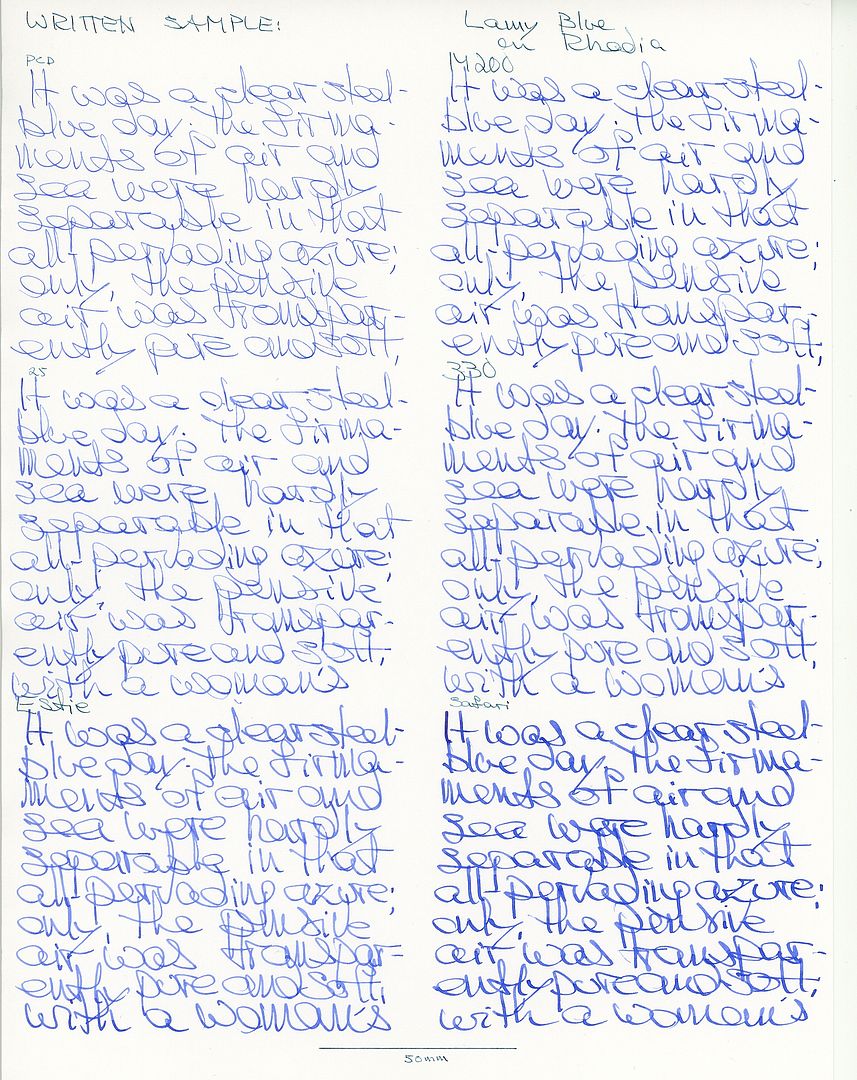 WRITTEN SAMPLE:
Lamy Blue
on Rhodia
PCD
It was a clear steel-
blue day. The firma-
ments of air and
sea were hardly
separable in that
all-pervading azure;
only, the pensive
air was transpar-
ently pure and soft,
25
It was a clear steel-
blue day. The firma-
ments of air and
sea were hardly
separable in that
all-pervading azure;
only, the pensive
air was transpar-
ently pure and soft,
with a woman's
Estie
It was a clear steel-
blue day. The firma-
ments of air and
sea were hardly
separable in that
all-pervading azure;
only, the pensive
air was transpar-
ently pure and soft,
with a woman's
M200
It was a clear steel-
blue day. The firma-
ments of air and
sea were hardly
separable in that
all-pervading azure;
only, the pensive
air was transpar-
ently pure and soft,
330
It was a clear steel-
blue day. The firma-
ments of air and
sea were hardly
separable in that
all-pervading azure;
only, the pensive
air was transpar-
ently pure and soft,
with a woman's
Safari
It was a clear steel-
blue day. The firma-
ments of air and
sea were hardly
separable in that
all-pervading azure;
only, the pensive
air was transpar-
ently pure and soft,
with a woman's
50mm